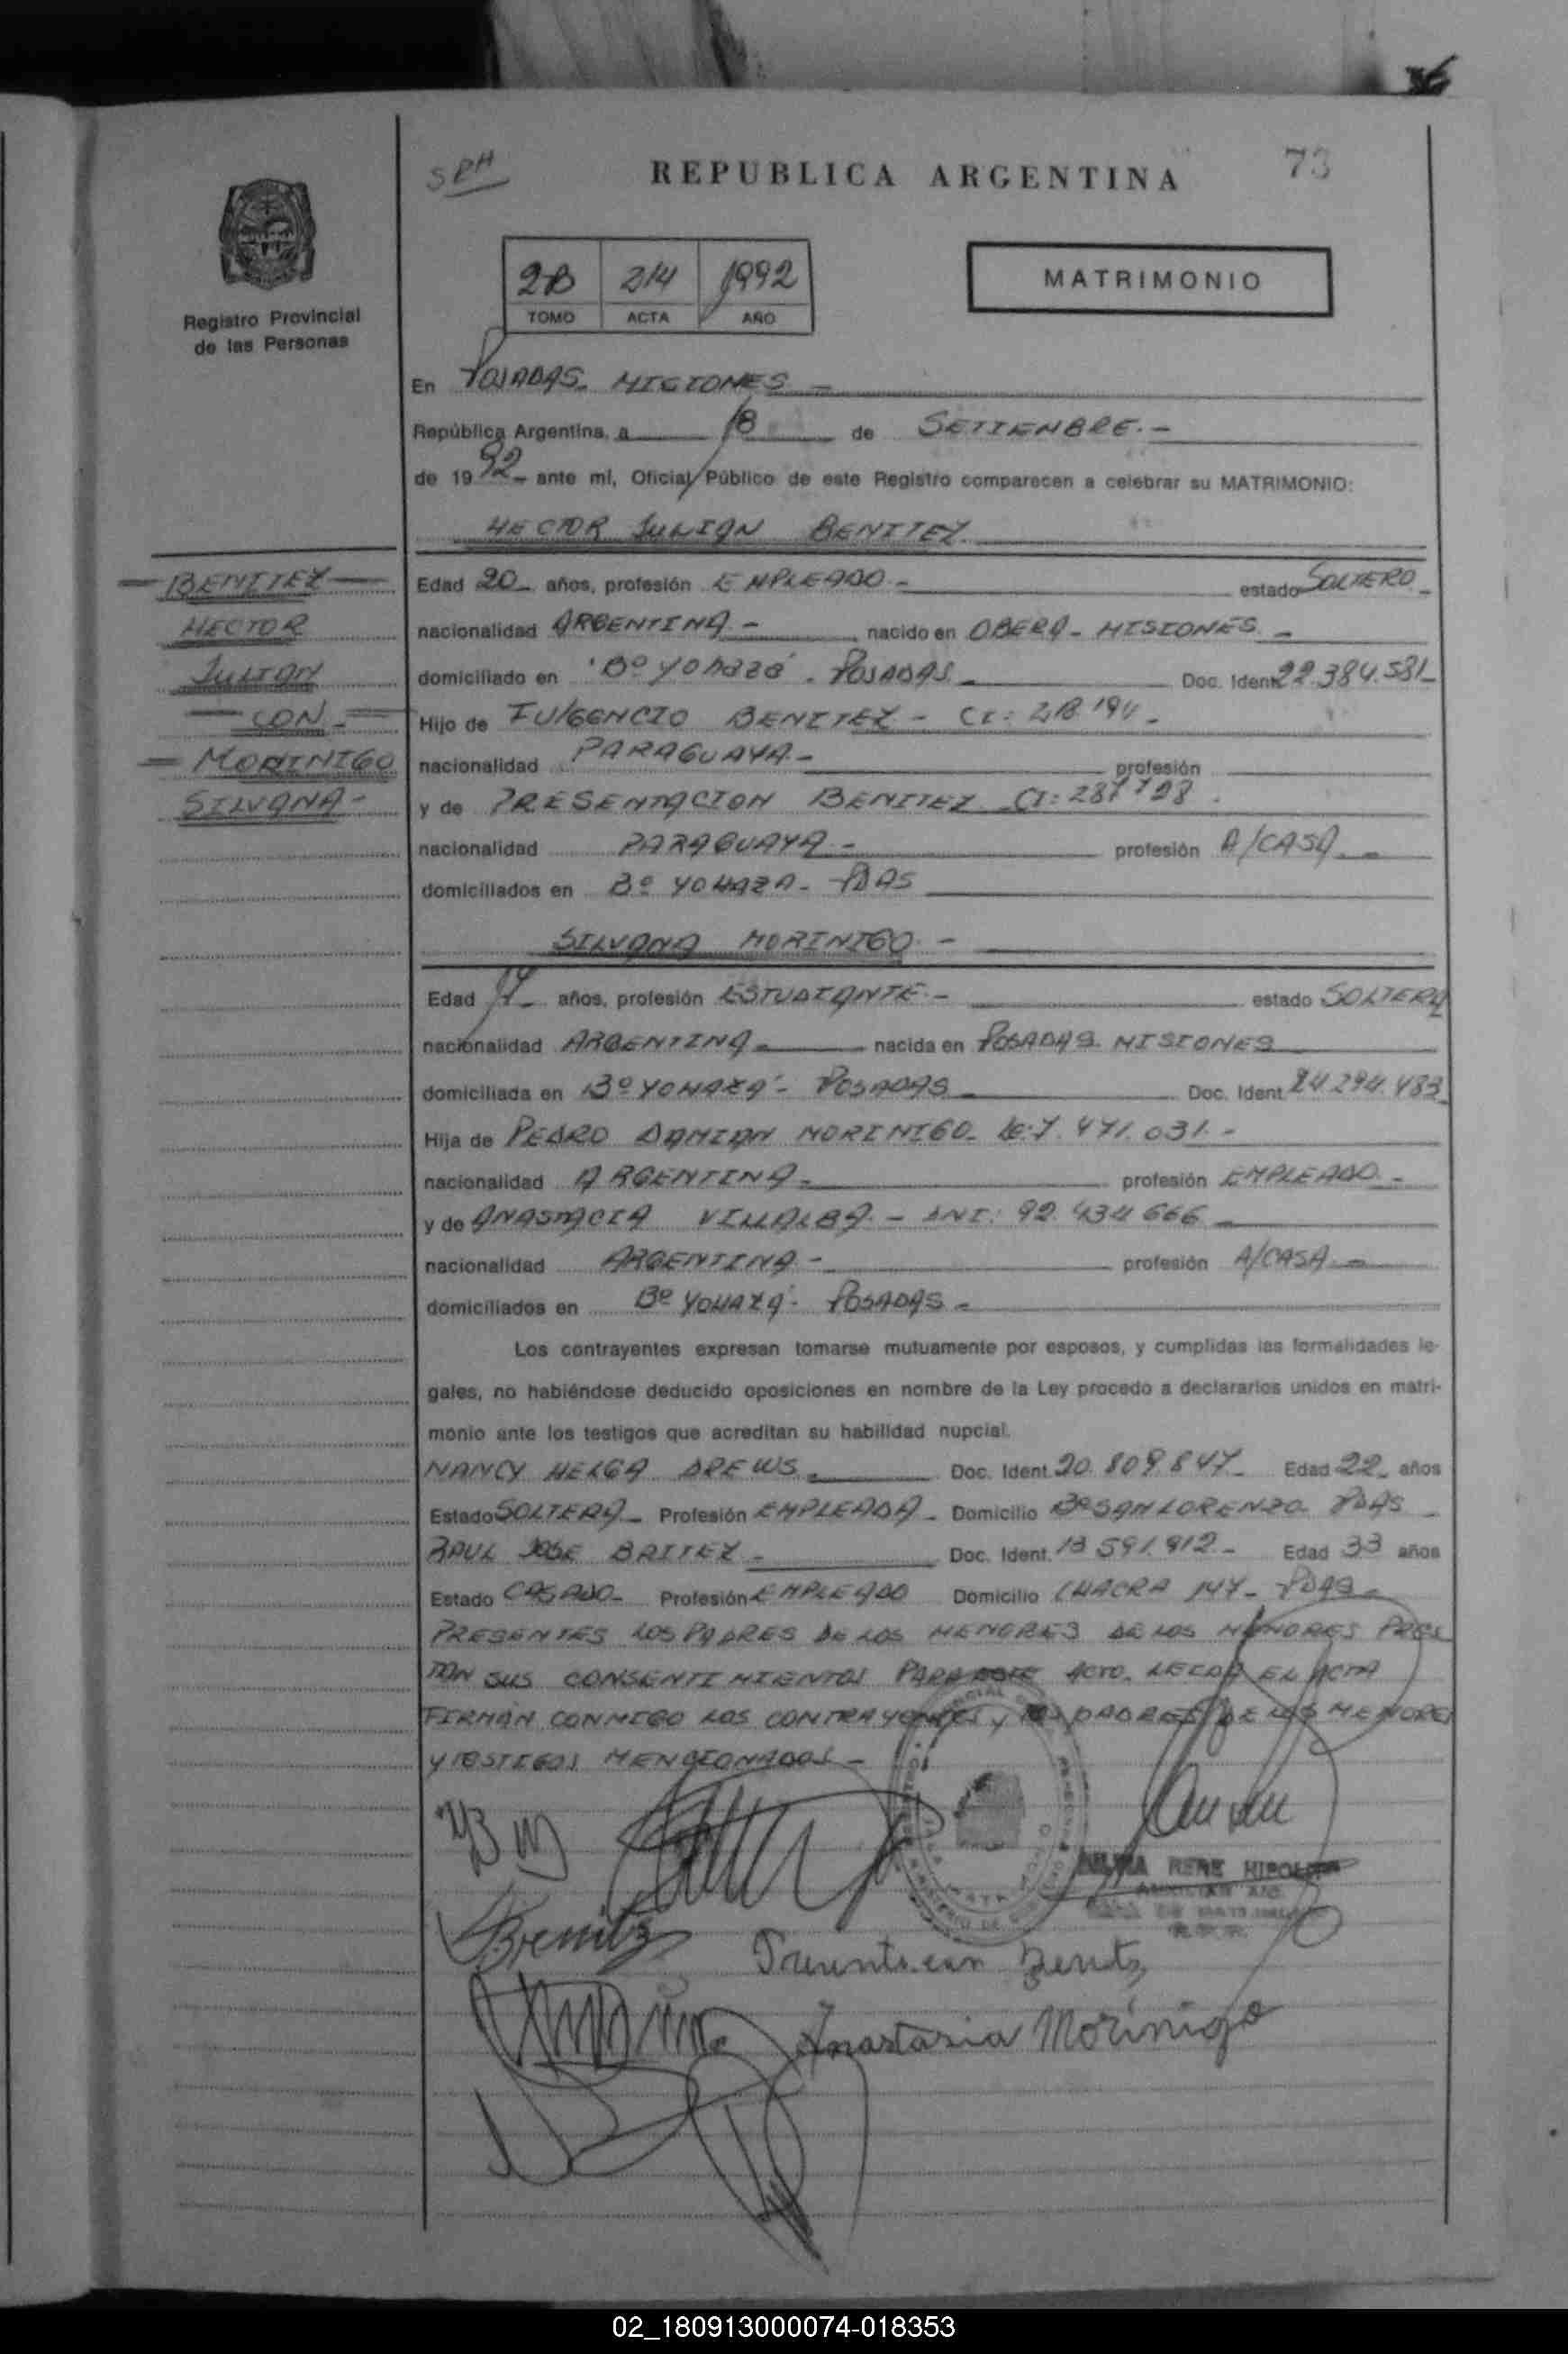 73
SRH
REPUBLICA ARGENTINA
2B 214 1992
TOMO ACTA AÑO
MATRIMONIO
Registro Provincial
de las Personas
En POSADAS. MISIONES -
República Argentina, a 18 de SETIEMBRE.-
de 19 92 - ante mí, Oficial Público de este Registro comparecen a celebrar su MATRIMONIO:
HECTOR JULIAN BENITEZ
BENITEZ
HECTOR
JULIAN
CON
MORINIGO
SILVANA-
Edad 20 años, profesión EMPLEADO.- estado SOLTERO.-
nacionalidad ARGENTINA.- nacido en OBERA - MISIONES.-
domiciliado en Bº YOHAZA. POSADAS.- Doc. Ident. 22.384.581-
Hijo de FULGENCIO BENITEZ - CI: 218194-
nacionalidad PARAGUAYA.- profesión
y de PRESENTACION BENITEZ CI: 287728.
nacionalidad PARAGUAYA.- profesión A/CASA.-
domiciliados en Bº YOHAZA - PDAS
SILVANA MORINIGO.-
Edad 17 años, profesión ESTUDIANTE.- estado SOLTERA
nacionalidad ARGENTINA - nacida en POSADAS. MISIONES
domiciliada en Bº YOHAZA - POSADAS - Doc. Ident. 24.294.483
Hija de PEDRO DAMIAN MORINIGO - LE: 7.471.031.-
nacionalidad ARGENTINA - profesión EMPLEADO.-
y de ANASTACIA VILLALBA. - DNI: 92.434.666 -
nacionalidad ARGENTINA.- profesión A/CASA.-
domiciliados en Bº YOHAZA - POSADAS -
Los contrayentes expresan tomarse mutuamente por esposos, y cumplidas las formalidades le-
gales, no habiéndose deducido oposiciones en nombre de la Ley procedo a declararlos unidos en matri-
monio ante los testigos que acreditan su habilidad nupcial.
NANCY HELGA DREWS. Doc. Ident. 20.809.847 - Edad 22 - años
Estado SOLTERA - Profesión EMPLEADA - Domicilio Bº SAN LORENZO PDAS -
RAUL JOSE BRITEZ - Doc. Ident. 13.591.912 - Edad 33 años
Estado CASADO - Profesión EMPLEADO Domicilio CHACRA 147 - PDAS -
PRESENTES LOS PADRES DE LOS MENORES DE LOS MENORES PRES
TAN SUS CONSENTIMIENTOS PARA ESTE ACTO. LEIDA EL ACTA
FIRMAN CONMIGO LOS CONTRAYENTES Y LOS PADRES DE LOS MENORES
Y TESTIGOS MENCIONADOS -
RENE HIPOLITA
Benitez
Anastasia Morinigo
02_180913000074-018353